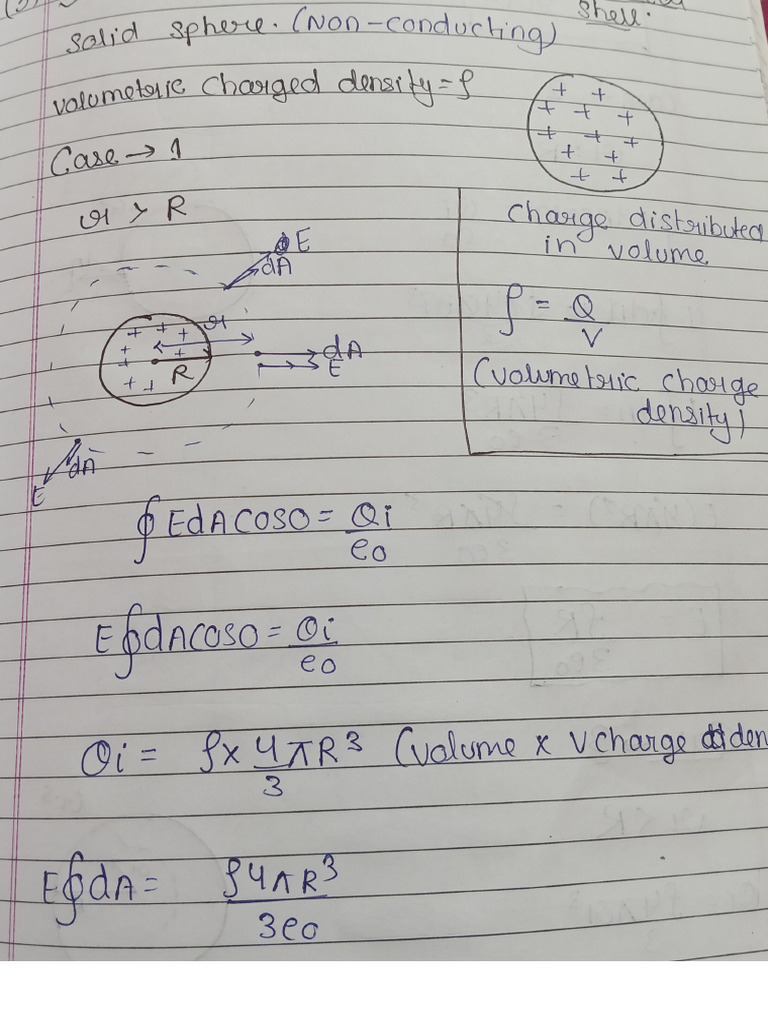 Shell.
Solid sphere. (Non-conducting)
volumetric charged density = ρ
Case → 1
r > R
E
dA
+ + + + + + + + + + + +
charge distributed
in volume
ρ = Q/V
(volumetric charge
density)
+ + + + + + + +
r
R
dA
E
dA
E
∮ EdA cos0 = Qi/e0
E∮dA cos0 = Qi/e0
Qi = ρ x 4πR³/3 (volume x V charge den
E∮dA = ρ4πR³/3e0